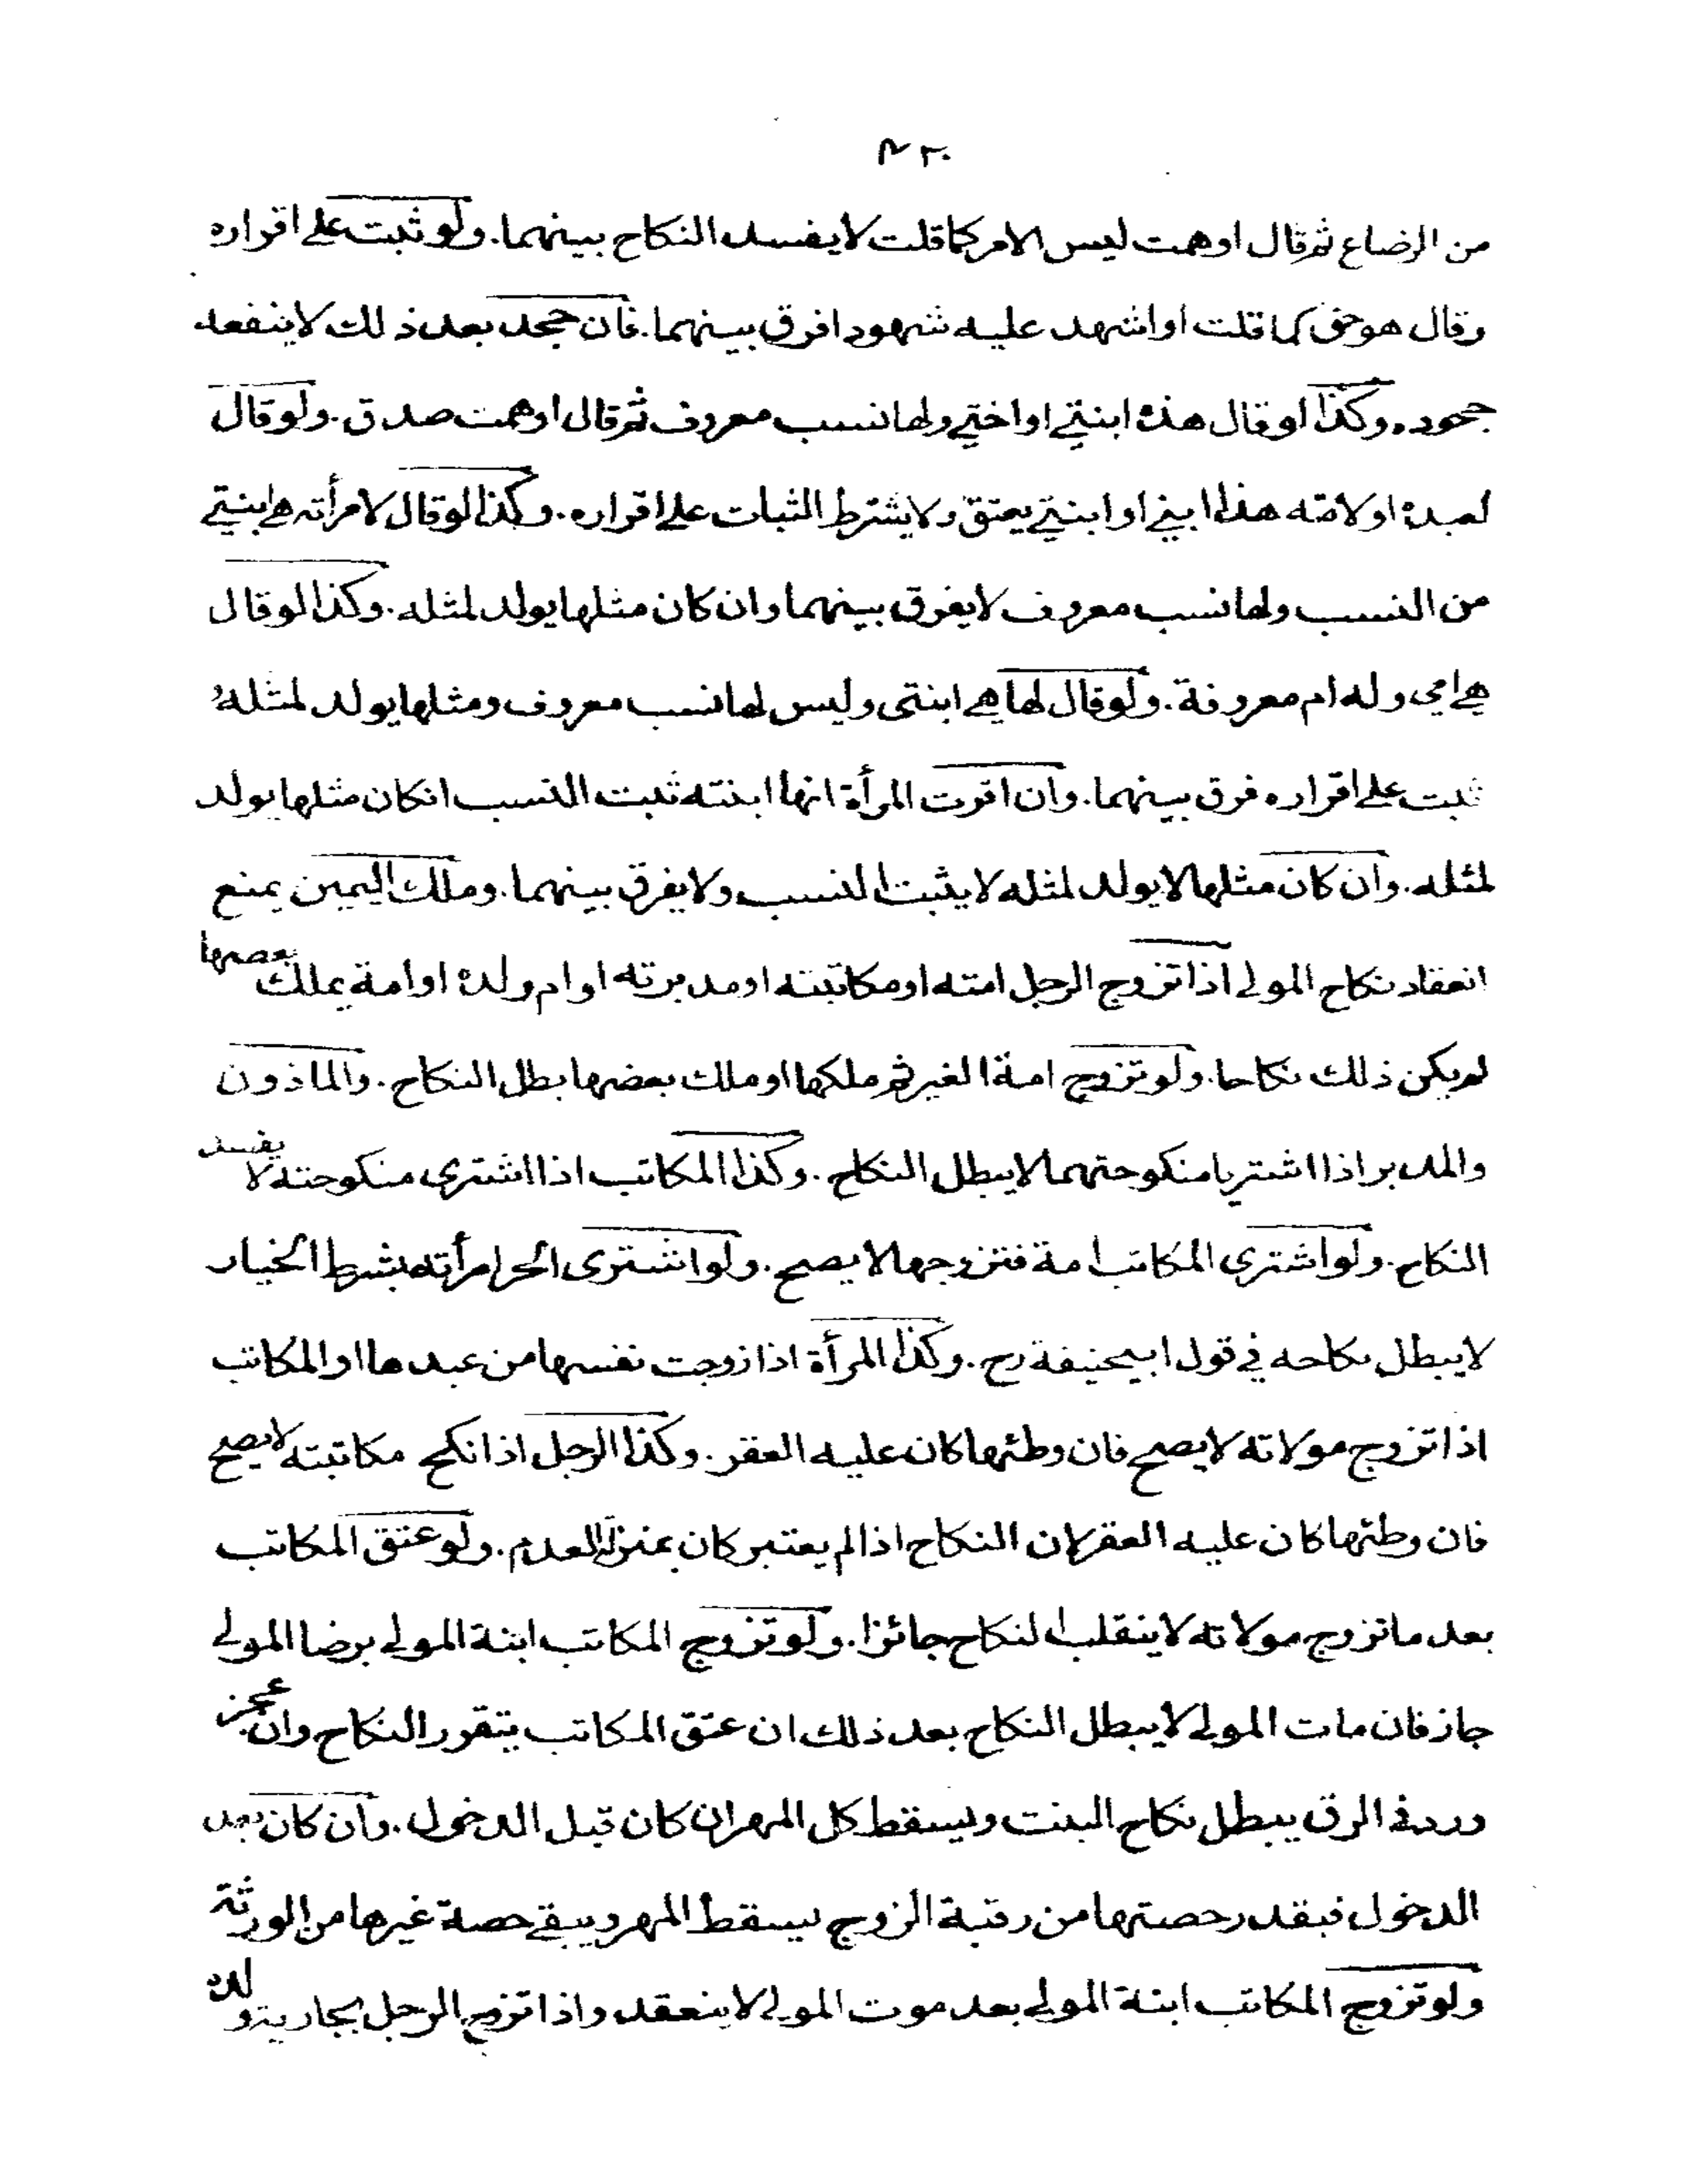 ٤٢٠
من الرضاع ثم قال اوهمت ليس الامر كما قلت لا يفسد النكاح بينهما. ولو ثبت على اقراره
وقال هو حق كما قلت او اشهد عليه شهودا فرق بينهما. فان جحد بعد ذلك لا ينفعه
جحوده. وكذا لو قال هذه ابنتي او اختي ولها نسب معروف ثم قال اوهمت صدق. ولو قال
لعبده او لامته هذا ابني او ابنتي يعتق ولا يشترط الثبات على اقراره. وكذا لو قال لامرأته هي ابنتي
من النسب ولها نسب معروف لا يفرق بينهما وان كان مثلها يولد لمثله. وكذا لو قال
هي امي وله ام معروفة. ولو قال لها هي ابنتى وليس لها نسب معروف ومثلها يولد لمثله و
ثبت على اقراره فرق بينهما. وان اقرت المرأة انها ابنته ثبت النسب انكان مثلها يولد
لمثله. وان كان مثلها لا يولد لمثله لا يثبت النسب ولا يفرق بينهما. وملك اليمين يمنع
انعقاد نكاح المولى اذا تزوج الرجل امته او مكاتبته او مدبرته او ام ولده او امة يملك بعضها
لم يكن ذلك نكاحا. ولو تزوج امة الغير ثم ملكها او ملك بعضها بطل النكاح. والماذون
والمدبر اذا اشتريا منكوحتهما لا يبطل النكاح. وكذا المكاتب اذا اشترى منكوحته لا يفسد
النكاح. ولو اشترى المكاتب امة فتزوجها لا يصح. ولو اشترى الحر امرأته بشرط الخيار
لا يبطل نكاحه في قول ابيحنيفة رح. وكذا المرأة اذا زوجت نفسها من عبدها او المكاتب
اذا تزوج مولاته لا يصح فان وطئها كان عليه العقر. وكذا الرجل اذا نكح مكاتبته لا يصح
فان وطئها كان عليه العقر لان النكاح اذا لم يعتبر كان بمنزلة العدم. ولو عتق المكاتب
بعد ما تزوج مولاته لا ينقلب النكاح جائزا. ولو تزوج المكاتب ابنة المولى برضا المولى
جاز فان مات المولى لا يبطل النكاح بعد ذلك ان عتق المكاتب يتقرر النكاح وان عجز
ورد في الرق يبطل نكاح البنت ويسقط كل المهر ان كان قبل الدخول. وان كان بعد
الدخول فبقدر حصتها من رقبة الزوج يسقط المهر ويبقي حصة غيرها من الورثة
ولو تزوج المكاتب ابنة المولى بعد موت المولى لا ينعقد واذا تزوج الرجل بجارية ولده